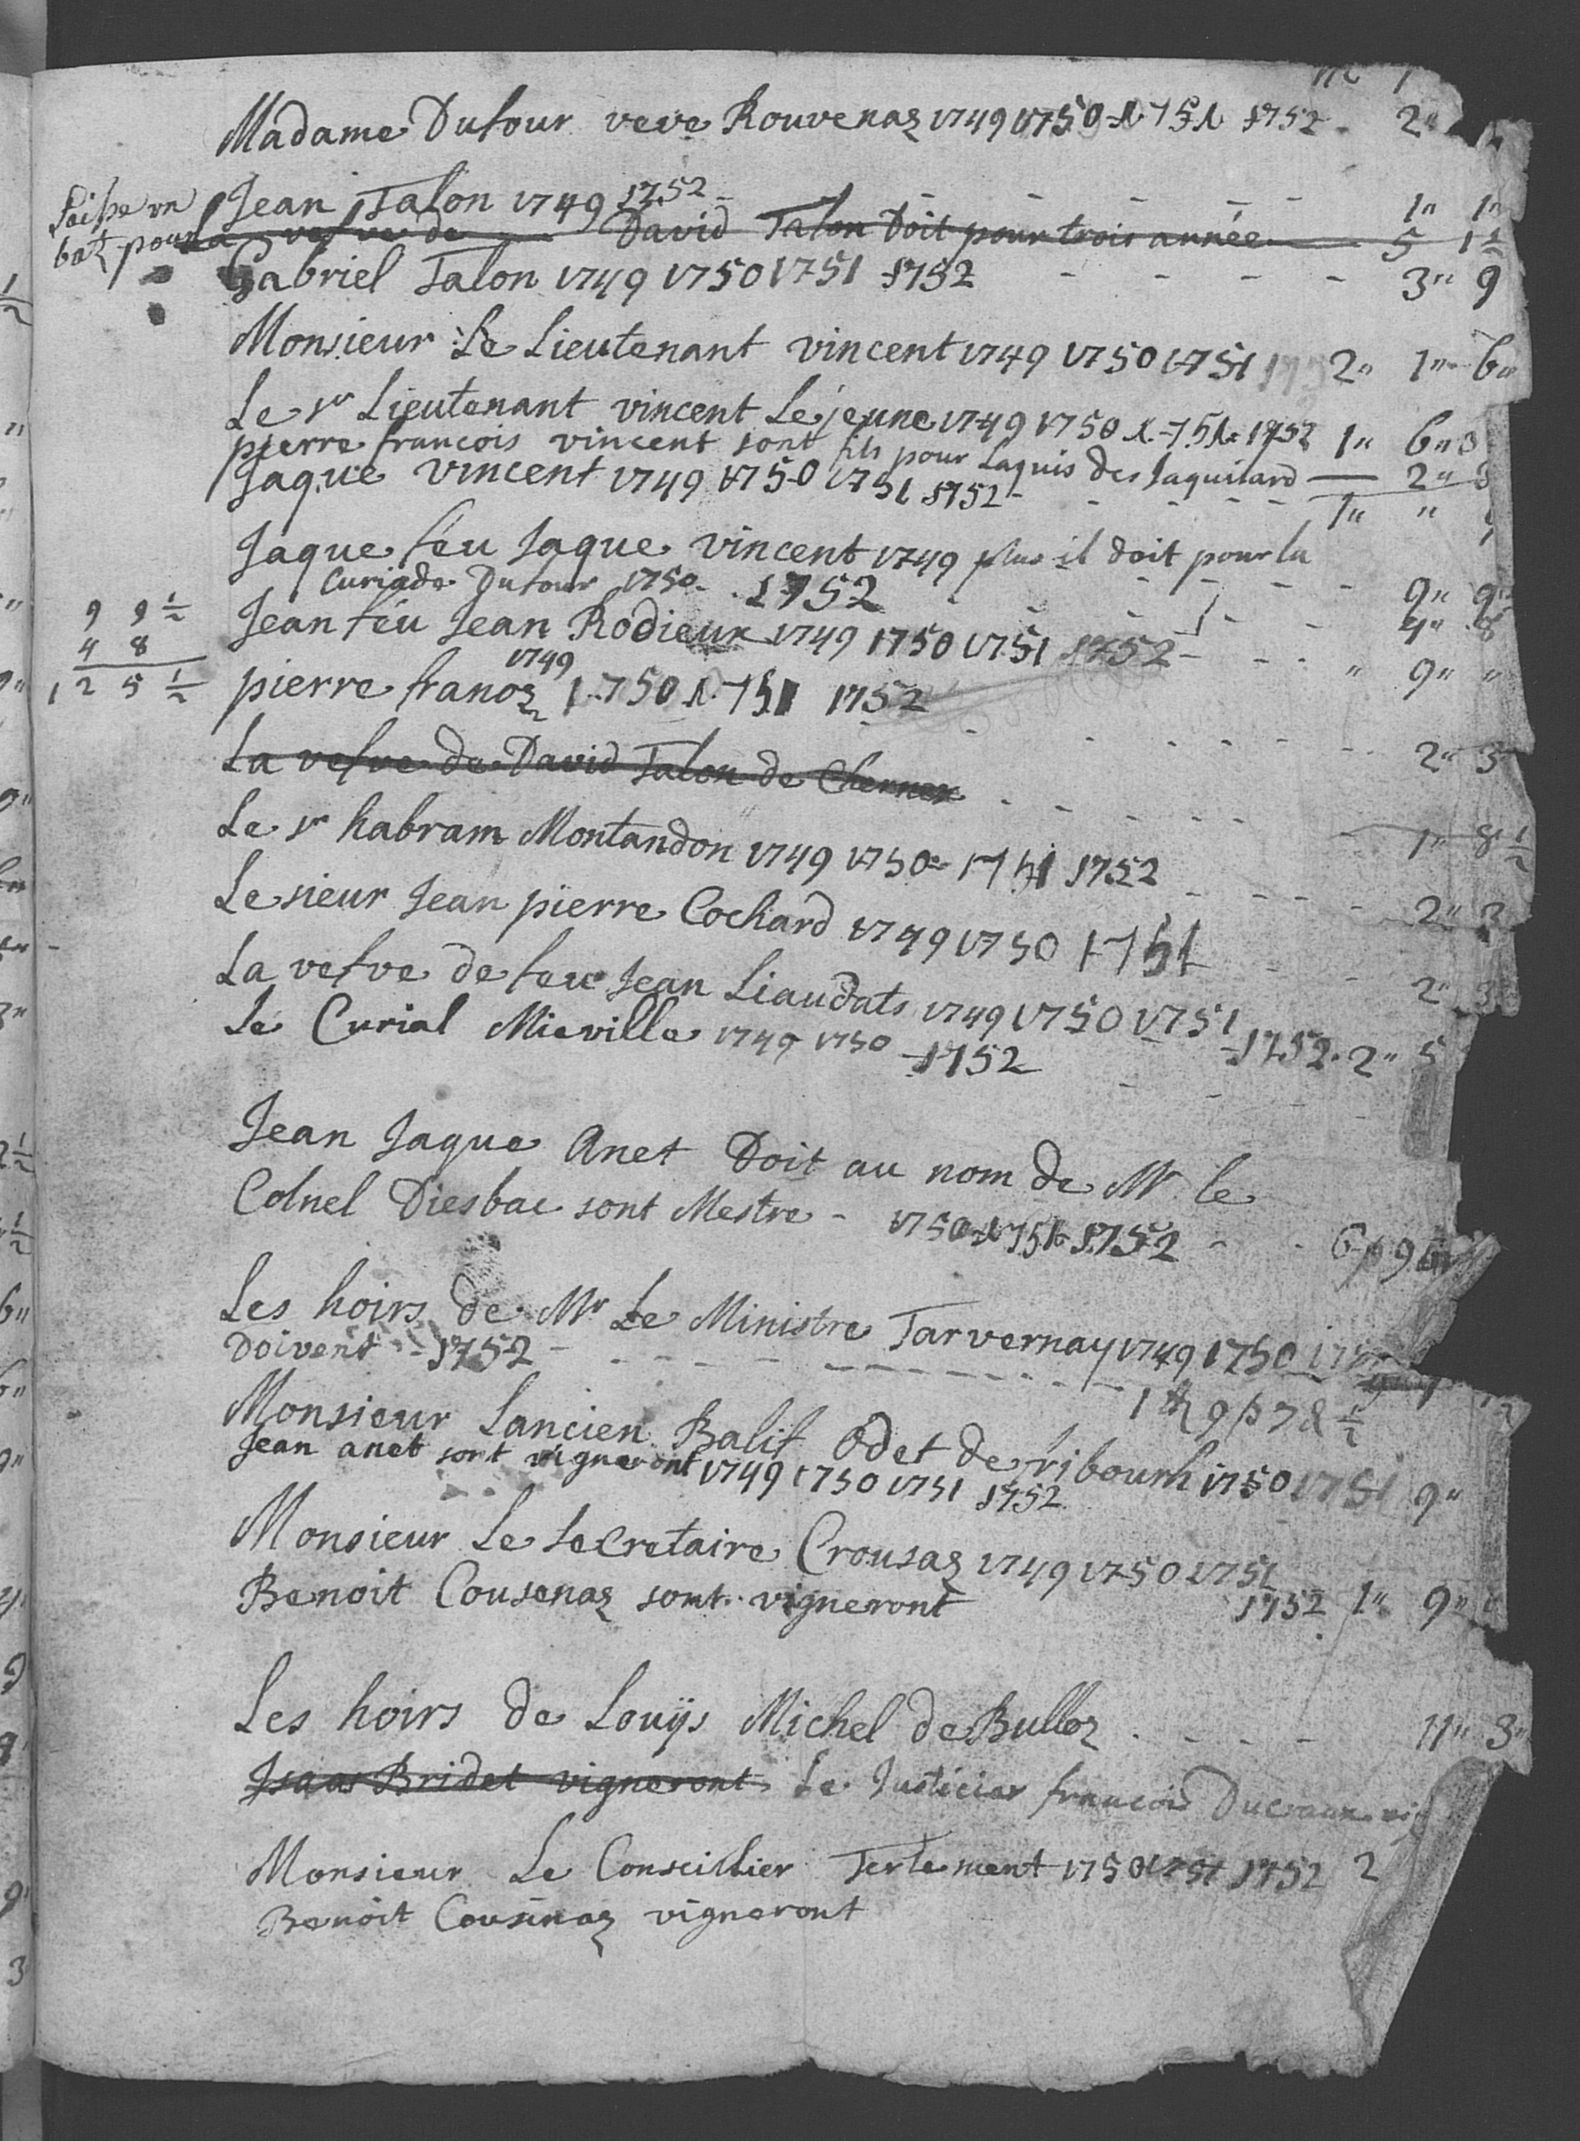 Madame Dufour veve Rouvenaz 1749 1750 1751 1752 - 2"
Jean Talon 1749 1752 - - - - - - 1" 1"
batz pour la vefve de David Talon Doit pour trois année 5 1 1/2
Gabriel Talon 1749 1750 1751 1752 - - - - 3" 9
Monsieur Le Lieutenant vincent 1749 1750 1751 2" 1" 6"
Le sr Lieutenant vincent Le jeune 1749 1750 1751 1752 1" 6" 3
pierre francois vincent sont fils pour Laquis des Jaquilard 2" 3
Jaque vincent 1749 1750 1751 1752 - - - - - 1" "
Jaque feu Jaque vincent 1749 plus il doit pour la
Curiade Dufour 1750 - 1752 - - - - - 9" 9
9 9 1/2
Jean feu Jean Rodieux 1749 1750 1751 1752 - - - 4" 8
4 8
12 5 1/2
pierre franoz 1749 1750 1751 1752 " 9" "
La vefve de David Talon de Chernex - - - - - 2" 3
Le sr habram Montandon 1749 1750 1751 1752 1" 8 1/2
Le sieur Jean pierre Cochard 1749 1750 1751 2" 3
La vefve de feu Jean Liaudats 1749 1750 1751 2" 3
1752 - 2" 5
Le Curial Mieville 1749 1750 - 1752
Jean Jaque Anet Doit au nom de Mr le
Colnel Diesbac sont Mestre - 1750 1751 1752 - - 6 p 9
Les hoirs de Mr Le Ministre Tarvernay 1749 1750
Doivent - 1752 - - - - - - - - - -
Monsieur Lancien Balif Odet de fribourh 1750 1751 9"
Jean anet sont vigneront 1749 1750 1751 1752
Monsieur Le secretaire Crousaz 1749 1750 1751
Benoit Cousenaz sont vigneront 1752 1" 9"
Les hoirs de Louÿs Michel de Bulloz - - - - 11" 3"
Isaac Bridet vigneront Le Justicier francois Ducraux
Monsieur Le Conseillier Tertement 1750 1751 1752 2
Benoit Cousinaz vigneront